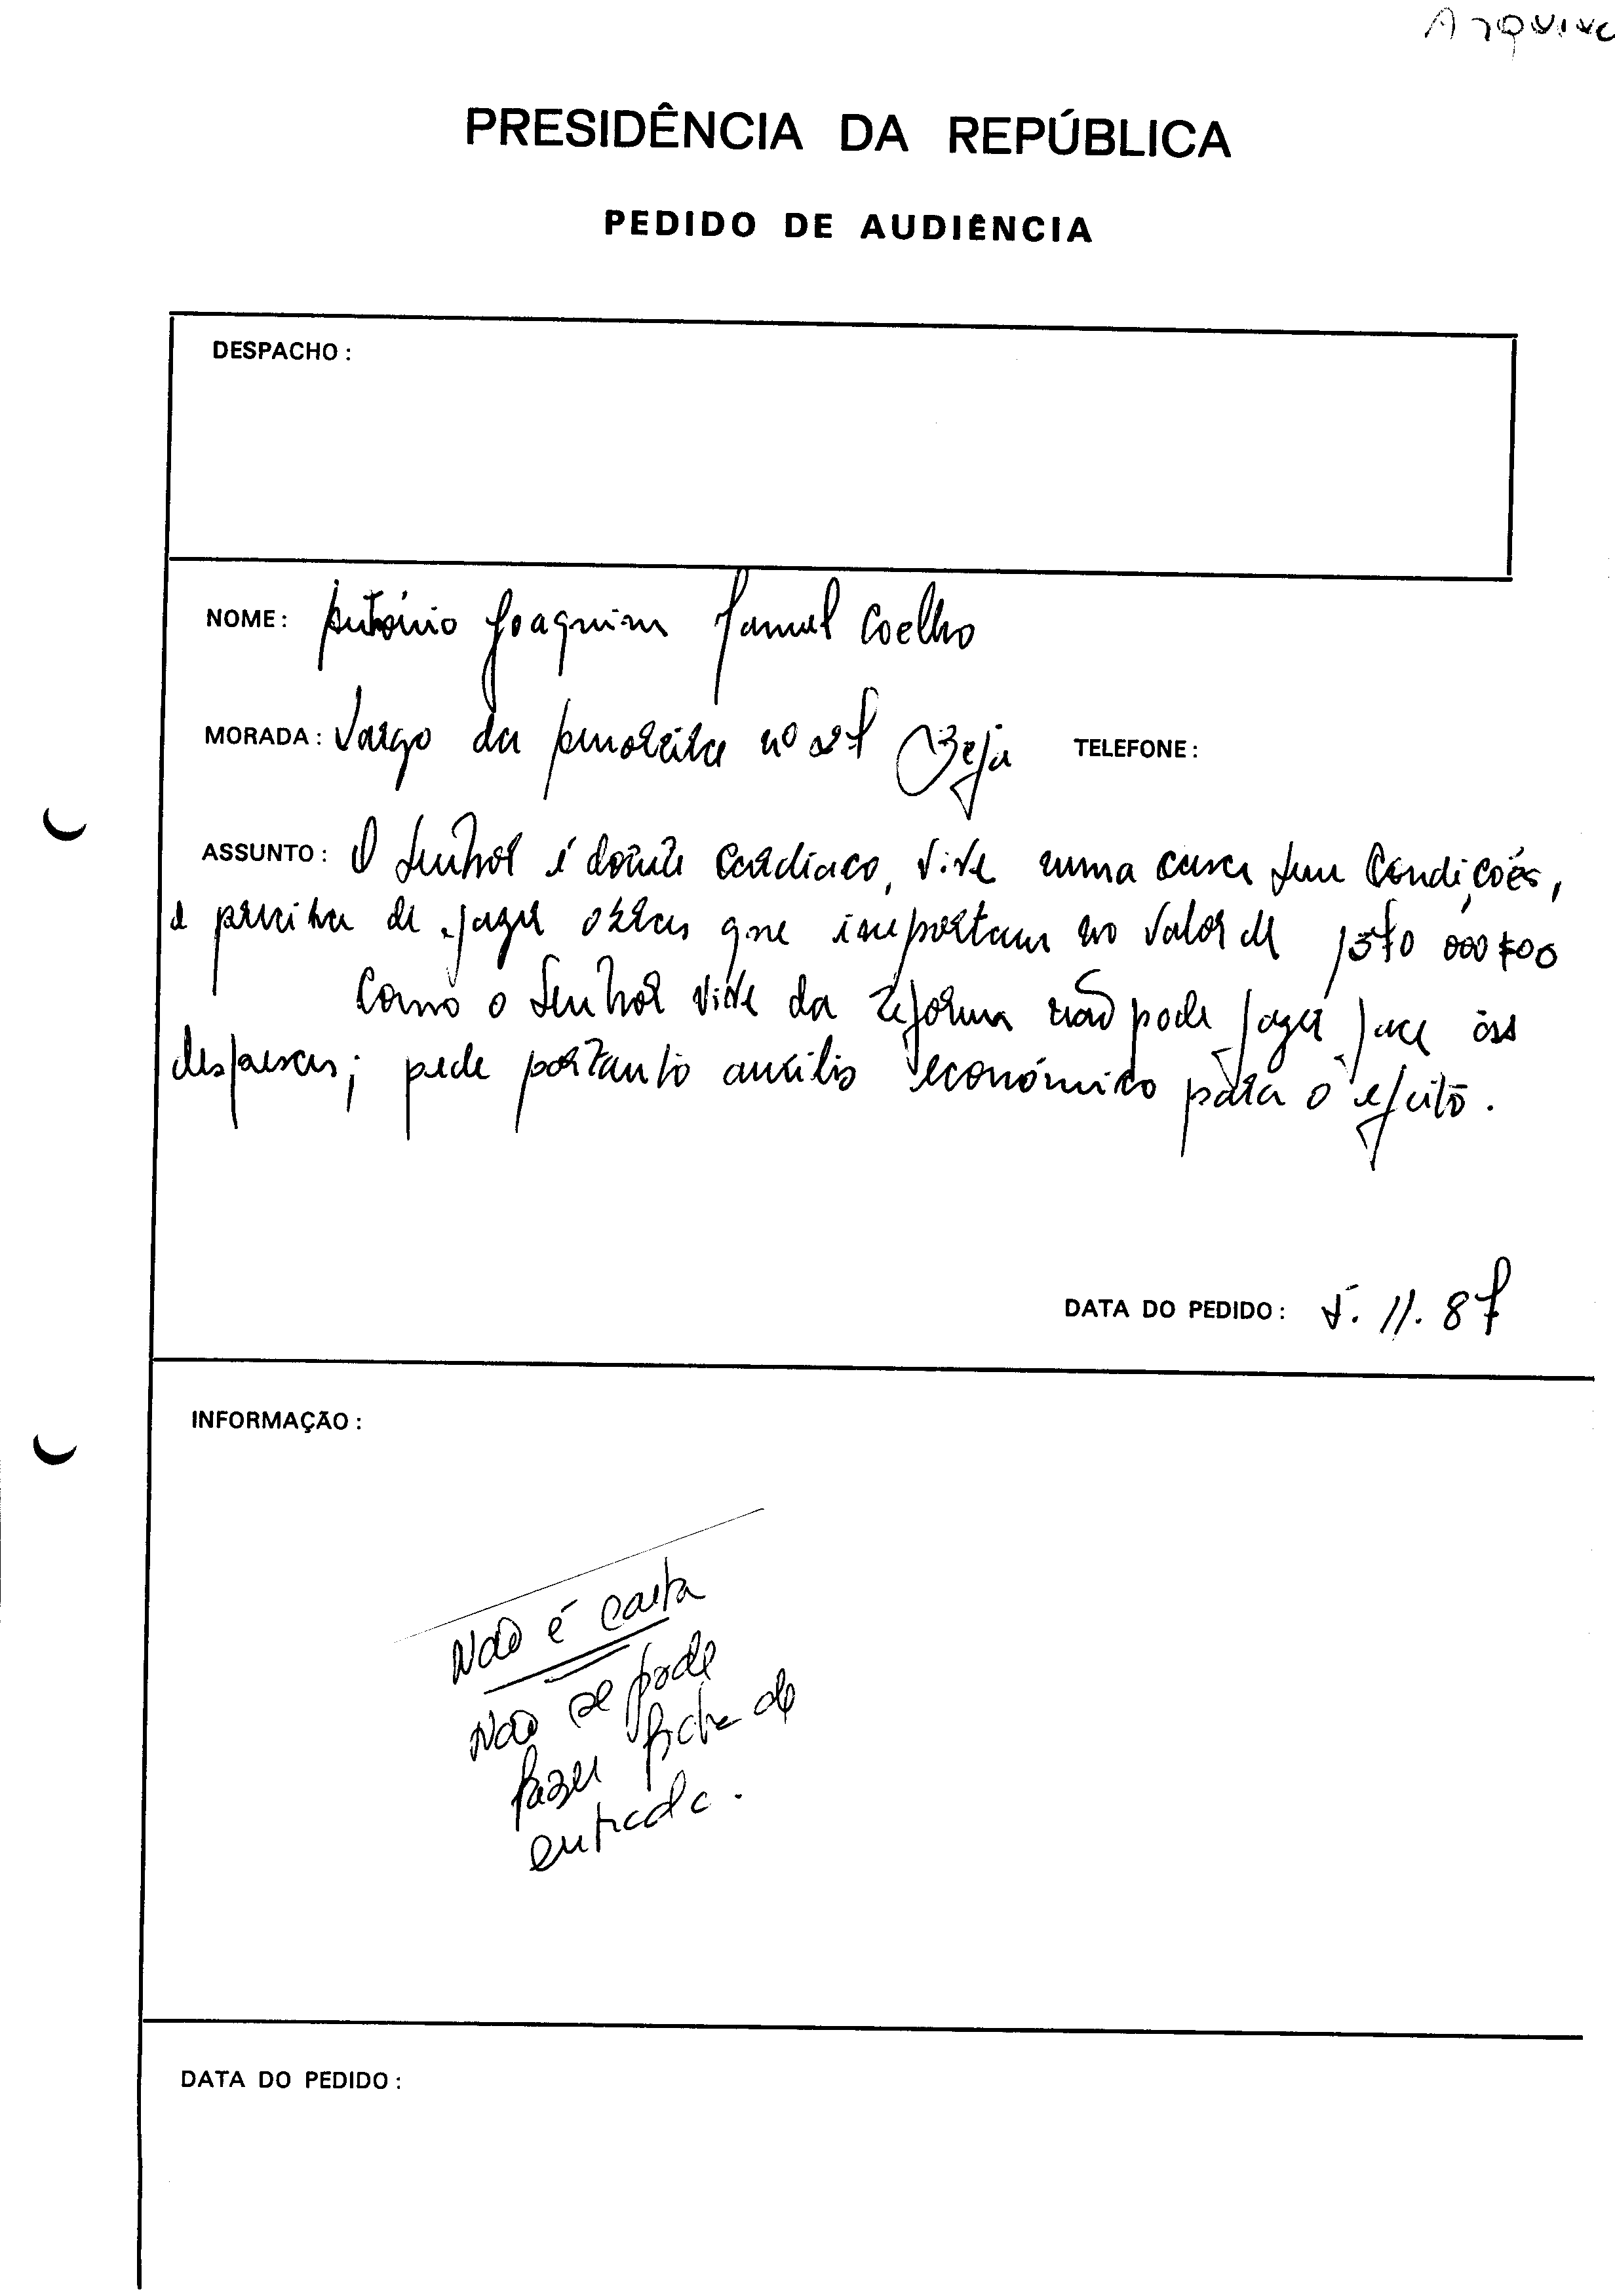 Arquivo
PRESIDÊNCIA DA REPÚBLICA
PEDIDO DE AUDIÊNCIA
DESPACHO :
NOME : António Joaquim Coelho
MORADA : Largo da nº 27 Beja TELEFONE :
ASSUNTO : O Senhor é doente Cardíaco, vive numa casa sem Condições,
e precisa de fazer obras que importam no valor de 000$00
Como o Senhor vive da reforma não pode fazer face às
despesas; pede portanto auxílio económico para o efeito.
DATA DO PEDIDO : 5. 11. 87
INFORMAÇÃO :
Não é carta
Não se pode
fazer ficha de
entrada.
DATA DO PEDIDO :